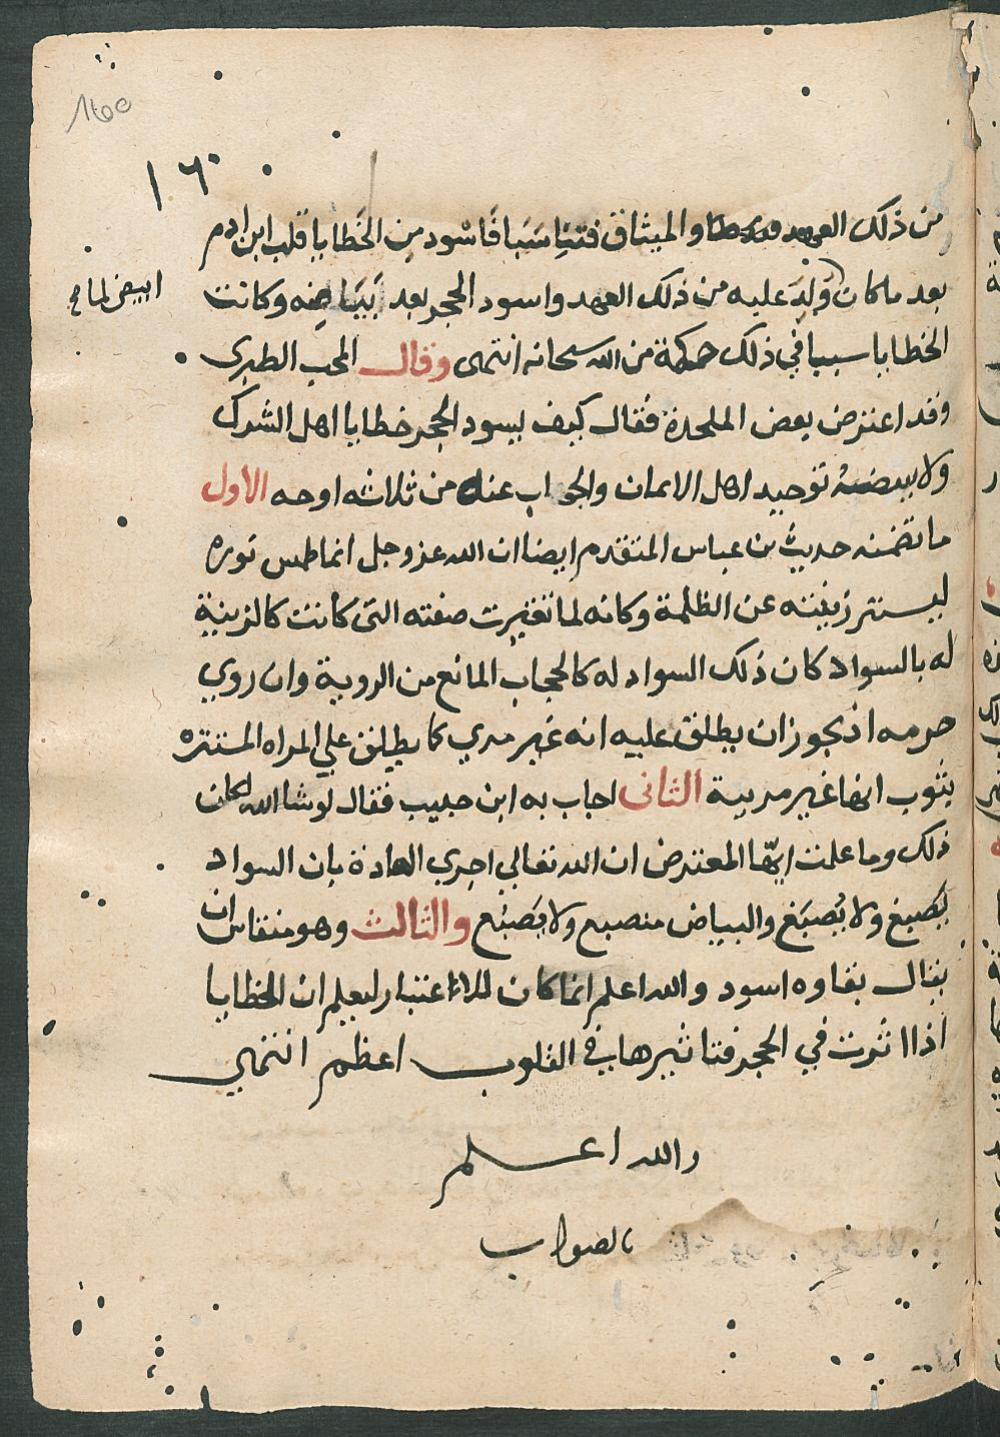 ١٦٠
من ذلك العهد والميثاق فتناسبا فاسود من الخطايا قلب ابن ادم
بعد ما كان وُلِدَ عليه من ذلك العهد واسود الحجر بعد بياضه وكانت
ابيض
الخطايا سببا في ذلك حكمة من الله سبحانه انتهى وقال المحب الطبرى
وقد اعترض بعض الملحدة فقال كيف يسود الحجر خطايا اهل الشرك
ولا يبيضه توحيد اهل الايمان والجواب عنه من ثلاثه اوجه الاول
ما تضمنه حديث بن عباس المتقدم ايضا ان الله عز وجل انما طمس نوره
ليستتر زينته عن الظلمة وكانه لما تغيرت صفته التى كانت كالزينة
له بالسواد كان ذلك السواد له كالحجاب المانع من الروية وان روي
جرمه اذ يجوز ان يطلق عليه انه غير مرى كما يطلق علي المراه المستتره
بثوب انها غير مريية الثانى اجاب به ابن حبيب فقال لو شا الله لكان
ذلك وما علمت ايها المعترض ان الله تعالي اجري العادة بان السواد
يَصبغ ولا يُصبَغ والبياض منصبع ولا يَصبُع والثالث وهو منقاس ان
يقال بقاوه اسود والله اعلم انما كان للاعتبار ليعلم ان الخطايا
اذا اثرت في الحجر فتاثيرها في القلوب اعظم انتهي
والله اعلم
بالصواب